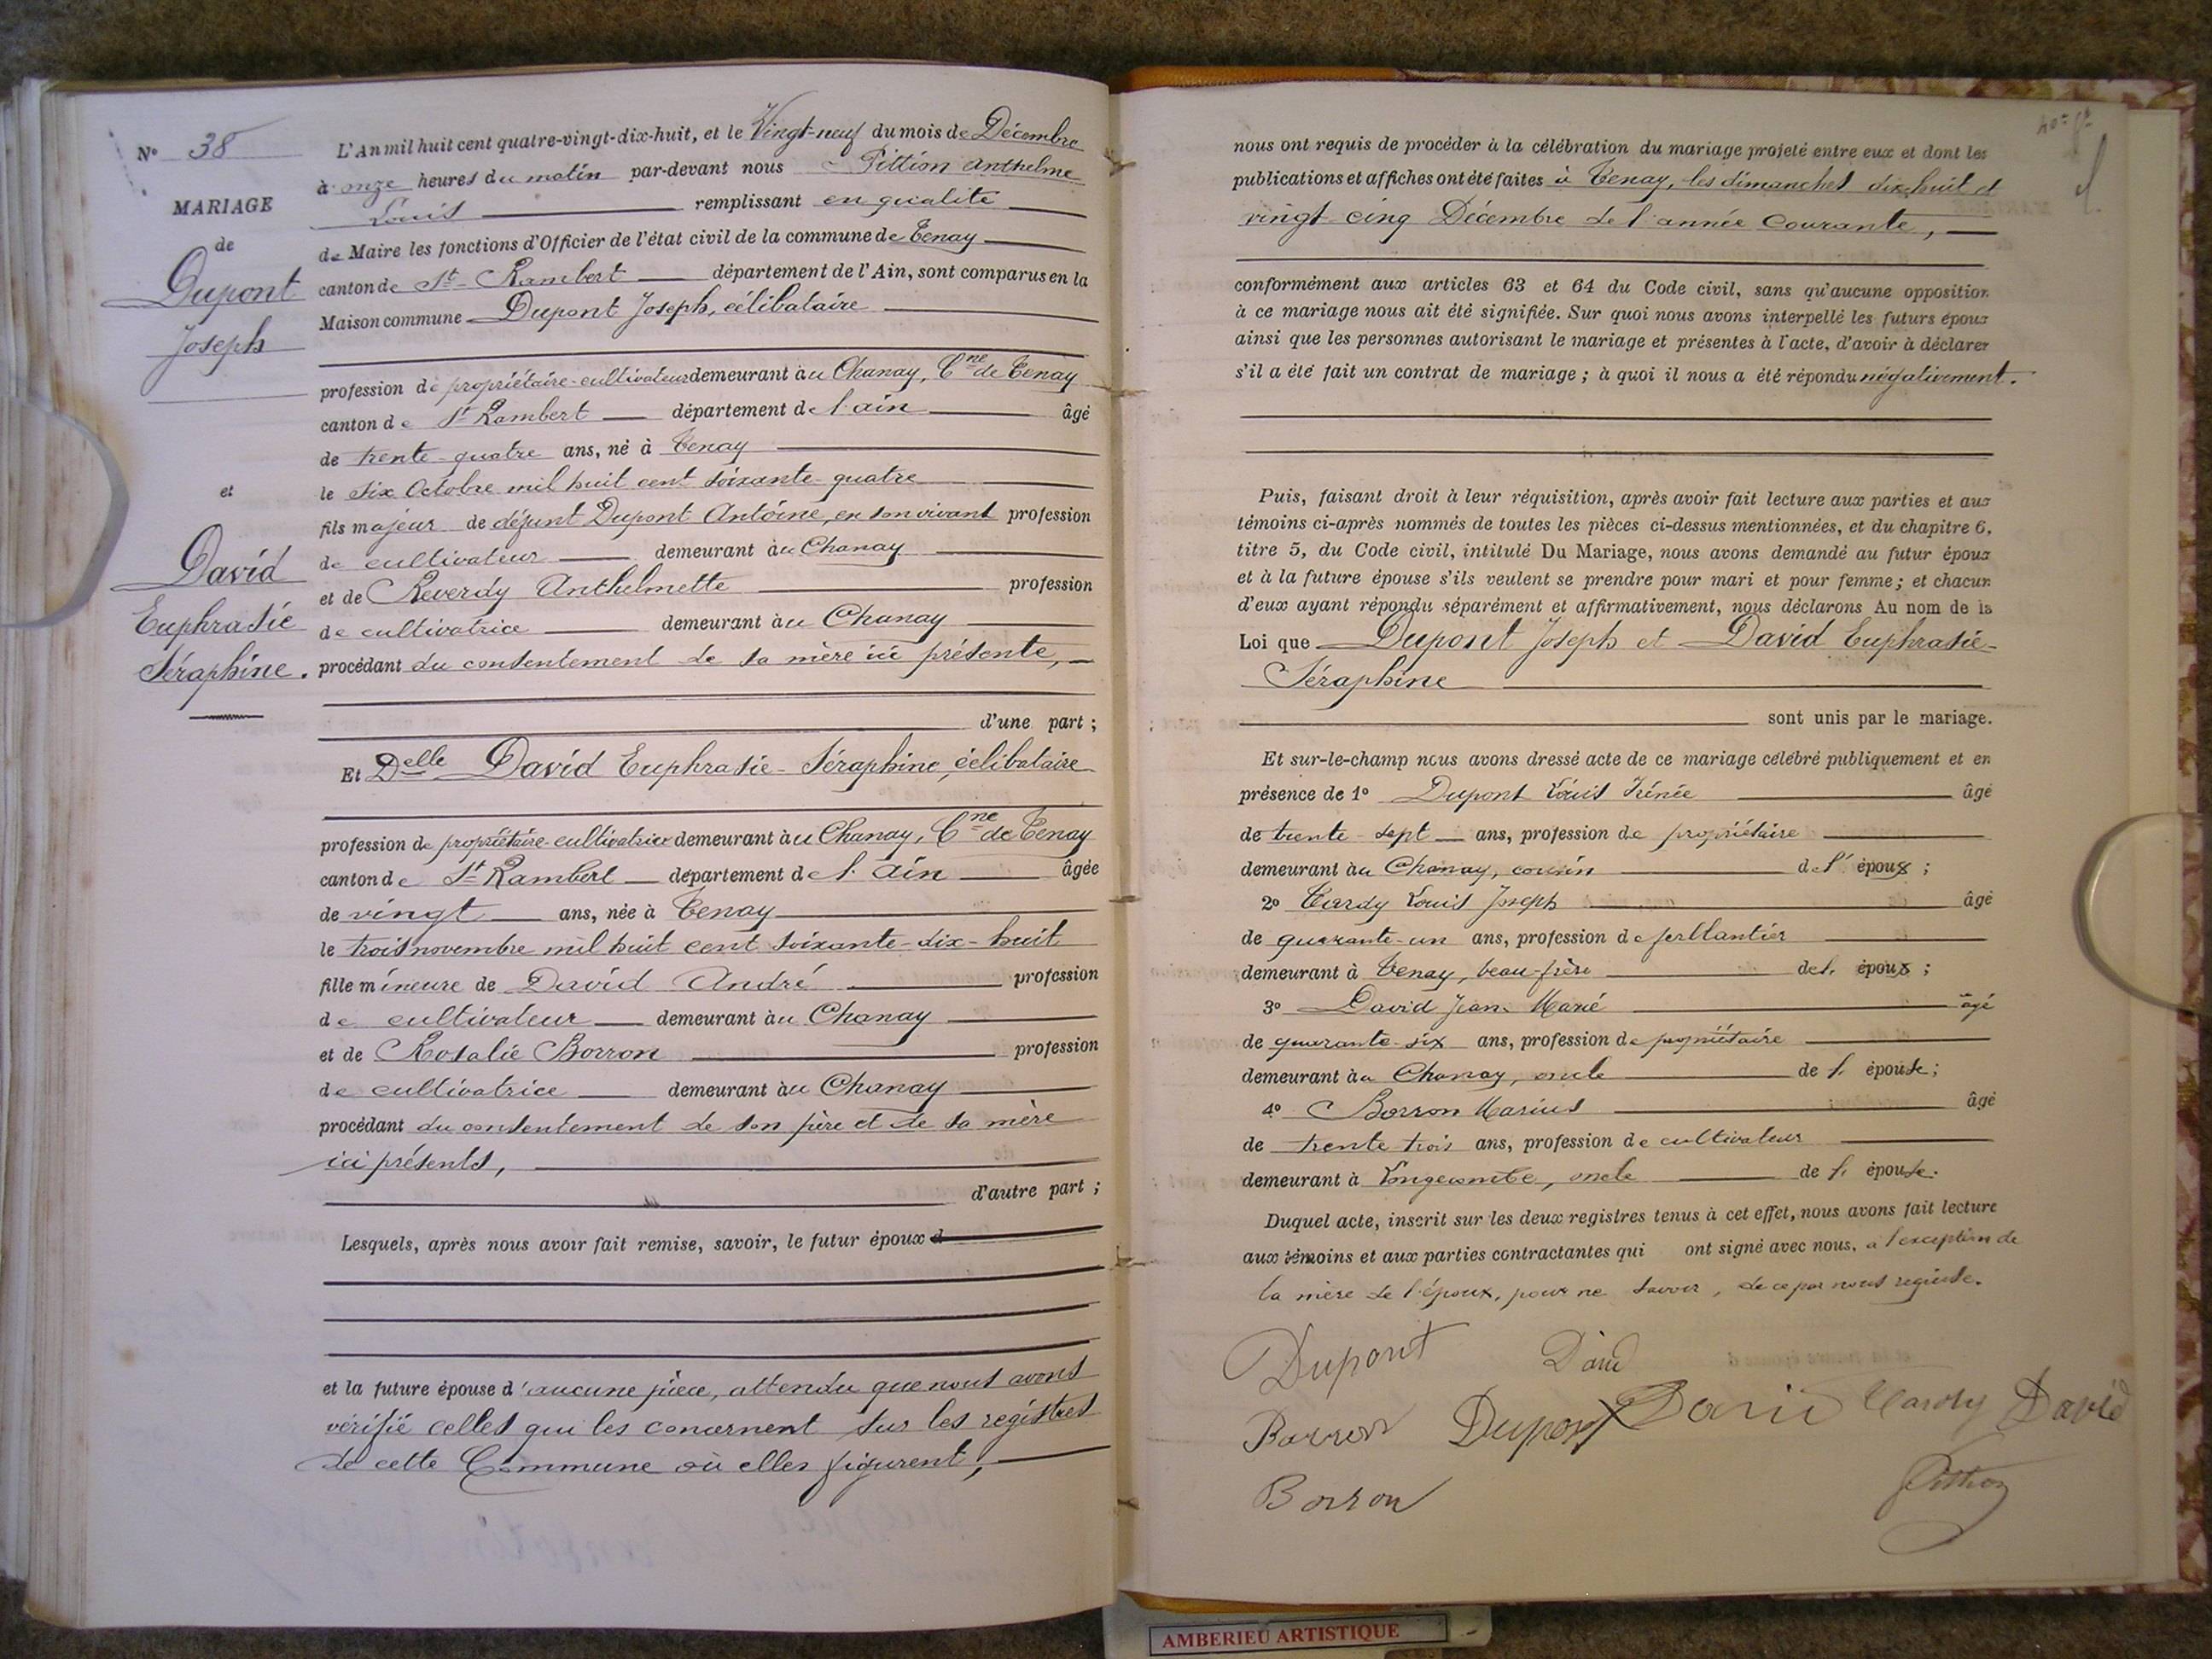 N° 38
MARIAGE
de
Dupont
Joseph
et
David
Euphrasie
Séraphine.
L'An mil huit cent quatre-vingt-dix-huit, et le Vingt-neuf du mois de Décembre
à onze heures du matin par-devant nous Pittion Anthelme
Louis remplissant en qualité
de Maire les fonctions d'Officier de l'état civil de la commune de Tenay
canton de St-Rambert département de l'Ain, sont comparus en la
Maison commune Dupont Joseph, célibataire
profession de propriétaire-cultivateur demeurant au Chanay, Cne de Tenay
canton de St Rambert département de l'ain âgé
de trente-quatre ans, né à Tenay
le six Octobre mil huit cent soixante-quatre
fils majeur de défunt Dupont Antoine, en son vivant profession
de cultivateur demeurant au Chanay
et de Reverdy Anthelmette profession
de cultivatrice demeurant au Chanay
procédant du consentement de sa mère ici présente,
d'une part ;
Et Delle David Euphrasie-Séraphine, célibataire
profession de propriétaire-cultivatrice demeurant au Chanay, Cne de Tenay
canton de St Rambert département de l'Ain âgée
de vingt ans, née à Tenay
le trois novembre mil huit cent soixante-dix-huit
fille mineure de David André profession
de cultivateur demeurant au Chanay
et de Rosalie Borron profession
de cultivatrice demeurant au Chanay
procédant du consentement de son père et de sa mère
ici présents,
d'autre part ;
Lesquels, après nous avoir fait remise, savoir, le futur époux d
et la future épouse d'aucune pièce, attendu que nous avons
vérifié celles qui les concernent sur les registres
de cette Commune où elles figurent,
nous ont requis de procéder à la célébration du mariage projeté entre eux et dont les
publications et affiches ont été faites à Tenay, les dimanches dix huit et
vingt-cinq Décembre de l'année courante,
conformément aux articles 63 et 64 du Code civil, sans qu'aucune opposition
à ce mariage nous ait été signifiée. Sur quoi nous avons interpellé les futurs époux
ainsi que les personnes autorisant le mariage et présentes à l'acte, d'avoir à déclarer
s'il a été fait un contrat de mariage ; à quoi il nous a été répondu négativement.
Puis, faisant droit à leur réquisition, après avoir fait lecture aux parties et aux
témoins ci-après nommés de toutes les pièces ci-dessus mentionnées, et du chapitre 6,
titre 5, du Code civil, intitulé Du Mariage, nous avons demandé au futur époux
et à la future épouse s'ils veulent se prendre pour mari et pour femme ; et chacun
d'eux ayant répondu séparément et affirmativement, nous déclarons Au nom de la
Loi que Dupont Joseph et David Euphrasie-
Séraphine
sont unis par le mariage.
Et sur-le-champ nous avons dressé acte de ce mariage célébré publiquement et en
présence de 1° Dupont Louis Irénée âgé
de trente-sept ans, profession de propriétaire
demeurant au Chanay, cousin de l'époux ;
2° Tardy Louis Joseph âgé
de quarante-un ans, profession de ferblantier
demeurant à Tenay, beau-frère de l'époux ;
3° David Jean-Marie âgé
de quarante-six ans, profession de propriétaire
demeurant au Chanay, oncle de l'épouse ;
4° Borron Marius âgé
de trente trois ans, profession de cultivateur
demeurant à Longecombe, oncle de l'épouse.
Duquel acte, inscrit sur les deux registres tenus à cet effet, nous avons fait lecture
aux témoins et aux parties contractantes qui ont signé avec nous, à l'exception de
la mère de l'époux, pour ne savoir, de ce par nous requise.
Dupont David
Borron Dupont David Tardy David
Borron Pittion
AMBERIEU ARTISTIQUE